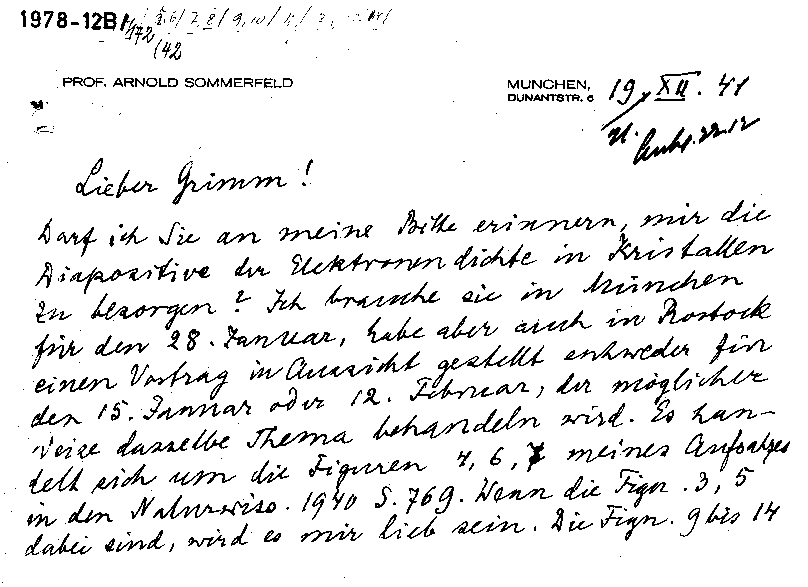 1978-12B/172
(42
PROF. ARNOLD SOMMERFELD
MÜNCHEN,
DUNANTSTR. 6
19. XII. 41
Lieber Grimm!
Darf ich Sie an meine Bitte erinnern, mir die
Diapositive der Elektronendichte in Kristallen
zu besorgen? Ich brauche sie in München
für den 28. Januar, habe aber auch in Rostock
einen Vortrag in Aussicht gestellt entweder für
den 15. Januar oder 12. Februar, der möglicher
Weise dasselbe Thema behandeln wird. Es han-
delt sich um die Figuren 4, 6, 7 meines Aufsatzes
in den Naturwiss. 1940 S. 769. Wenn die Fign. 3, 5
dabei sind, wird es mir lieb sein. Die Fign. 9 bis 14